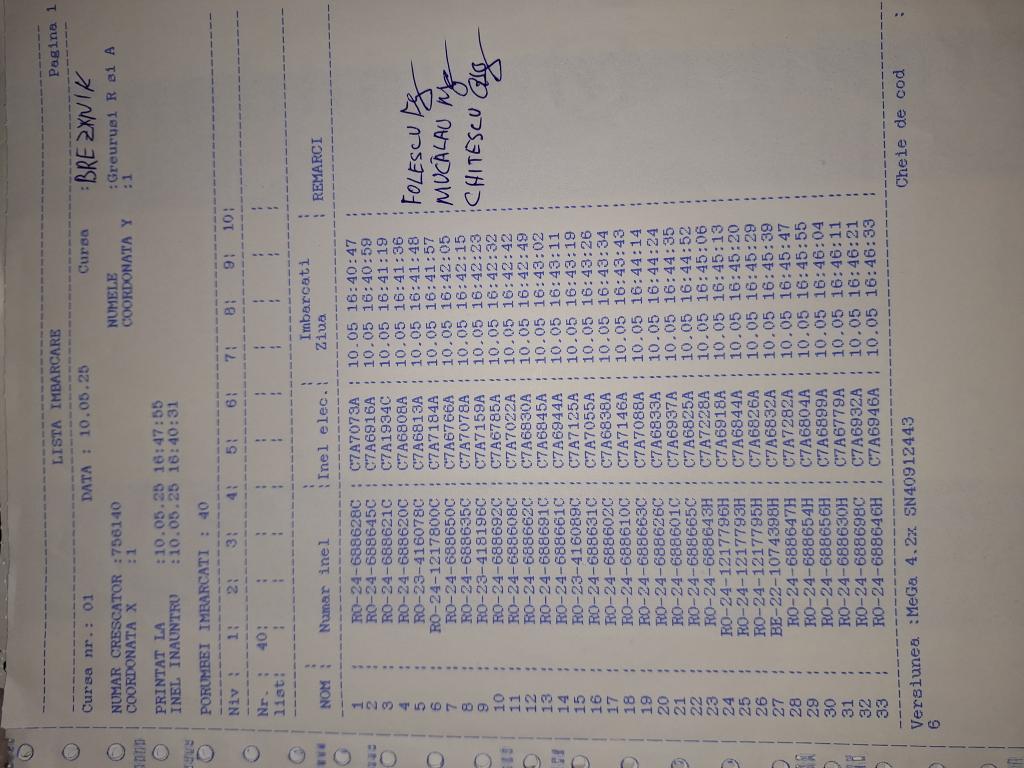 Pagina 1
LISTA IMBARCARE
Cursa nr.: 01 DATA : 10.05.25 Cursa :BREZXNIK
NUMAR CRESCATOR :796140 NUMELE :Greurusi R si A
COORDONATA X :1 COORDONATA Y :1
PRINTAT LA :10.05.25 16:47:55
INEL INAUNTRU :10.05.25 16:40:31
PORUMBEI IMBARCATI : 40
Niv : 1: 2: 3: 4: 5: 6: 7: 8: 9: 10:
Nr. : 40: : : : : : : : :
list: : : : : : : : : :
NOM : Numar inel :Inel elec.: Imbarcati Ziua : REMARCI
1 : RO-24-688628C: C7A7073A : 10.05 16:40:47 :
2 : RO-24-688645C: C7A6916A : 10.05 16:40:59 :
3 : RO-24-688621C: C7A1934C : 10.05 16:41:19 :
4 : RO-24-688620C: C7A6808A : 10.05 16:41:36 : FOLESCU
5 : RO-23-416078C: C7A6813A : 10.05 16:41:48 :
6 : RO-24-1217800C: C7A7184A : 10.05 16:41:57 : MUCALAU
7 : RO-24-688650C: C7A6766A : 10.05 16:42:05 :
8 : RO-24-688635C: C7A7078A : 10.05 16:42:15 : CHITESCU
9 : RO-23-418196C: C7A7159A : 10.05 16:42:23 :
10 : RO-24-688692C: C7A6785A : 10.05 16:42:32 :
11 : RO-24-688608C: C7A7022A : 10.05 16:42:42 :
12 : RO-24-688662C: C7A6830A : 10.05 16:42:49 :
13 : RO-24-688691C: C7A6845A : 10.05 16:43:02 :
14 : RO-24-688661C: C7A6944A : 10.05 16:43:11 :
15 : RO-23-416089C: C7A7125A : 10.05 16:43:19 :
16 : RO-24-688631C: C7A7055A : 10.05 16:43:26 :
17 : RO-24-688602C: C7A6838A : 10.05 16:43:34 :
18 : RO-24-688610C: C7A7146A : 10.05 16:43:43 :
19 : RO-24-688663C: C7A7088A : 10.05 16:44:14 :
20 : RO-24-688626C: C7A6833A : 10.05 16:44:24 :
21 : RO-24-688601C: C7A6937A : 10.05 16:44:35 :
22 : RO-24-688665C: C7A6825A : 10.05 16:44:52 :
23 : RO-24-688643H: C7A7226A : 10.05 16:45:06 :
24 : RO-24-1217796H: C7A6918A : 10.05 16:45:13 :
25 : RO-24-1217793H: C7A6844A : 10.05 16:45:20 :
26 : RO-24-1217795H: C7A6826A : 10.05 16:45:29 :
27 : BE-22-1074398H: C7A6832A : 10.05 16:45:39 :
28 : RO-24-688647H: C7A7282A : 10.05 16:45:47 :
29 : RO-24-688654H: C7A6804A : 10.05 16:45:55 :
30 : RO-24-688656H: C7A6899A : 10.05 16:46:04 :
31 : RO-24-688630H: C7A6779A : 10.05 16:46:11 :
32 : RO-24-688698C: C7A6932A : 10.05 16:46:21 :
33 : RO-24-688646H: C7A6946A : 10.05 16:46:33 :
Versiunea :MeGa 4.2x SN40912443 Cheie de cod :
6